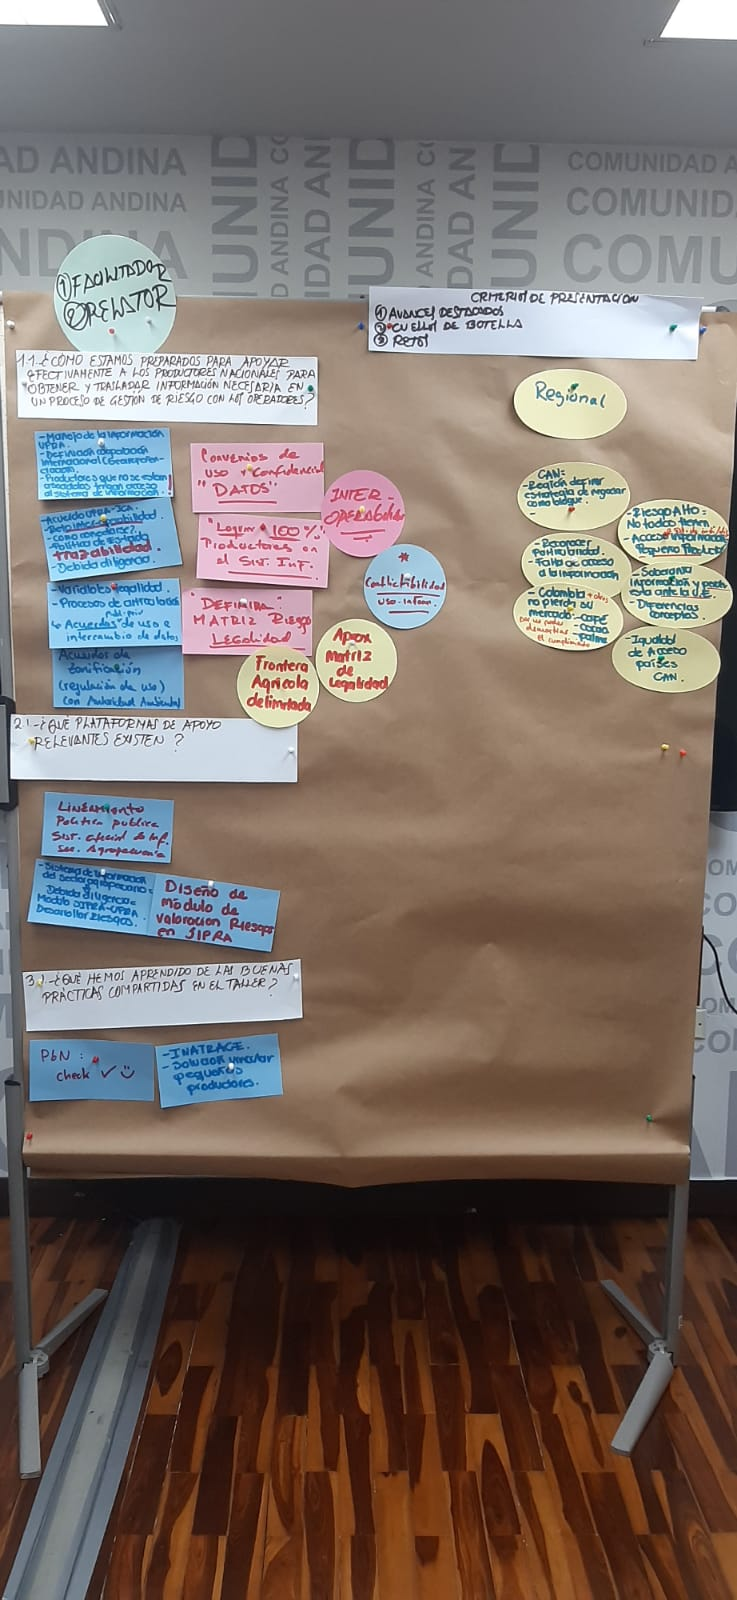 AD ANDINA
NIDAD ANDINA
NDINA
COMUNIDAD A
COMUNID
COMU
① FACILITADOR
② RELATOR
CRITERIOS DE PRESENTACION
① AVANCES DESTACADOS
② CUELLOS DE BOTELLA
③ RETOS
1.1.-¿CÓMO ESTAMOS PREPARADOS PARA APOYAR
EFECTIVAMENTE A LOS PRODUCTORES NACIONALES PARA
OBTENER Y TRASLADAR INFORMACIÓN NECESARIA EN
UN PROCESO DE GESTIÓN DE RIESGO CON LOS OPERADORES?
- Manejo de la información
UPRA.
- Definición cooperación
internacional
- Productores que no se estan
tengan acceso
al sistema de información. !
- Acuerdo UPRA-ICA.
- Política de Estado
Trazabilidad.
- Debida diligencia.
- Variables legalidad.
- Procesos de articulación
↳ Acuerdos de uso e
intercambio de datos
Acuerdos de
zonificación
(regulación de uso)
con Autoridad Ambiental
Convenios de
uso y Confidencial
"DATOS"
"Lograr 100%"
Productores en
el Sist. Inf.
"DEFINIR"
MATRIZ RIESGO
LEGALIDAD
INTER-
OPERABILIDAD
*
Conflictibilidad
uso-inform.
Aprox
Matriz
de
Legalidad
Frontera
Agrícola
delimitada
Regional
CAN:
- Región definir
estrategia de negociar
como bloque.
- Reconocer
particularidad.
- Falta de acceso
a la información
- Colombia + otros
no pierda su
mercado - CAFÉ
- Cacao
- Palma
por no poder
demostrar
el cumplimiento
- Riesgo ALTO:
No todos tienen
- Acceso información
Pequeño Productor
- Soberanía
información y
esta ante la U.E.
- Diferencias
conceptos.
- Igualdad
de Acceso
países
CAN.
2.1.-¿QUÉ PLATAFORMAS DE APOYO
RELEVANTES EXISTEN?
LINEAMIENTO
Política pública
Sist. oficial de Inf.
Sec. Agropecuario
- Sistema de Información
del Sector agropecuario
Debida diligencia
Modulo SIPRA-UPRA
Desarrollar Riesgos.
Diseño de
módulo de
valoración Riesgos
en SIPRA
3.1-¿QUÉ HEMOS APRENDIDO DE LAS BUENAS
PRÁCTICAS COMPARTIDAS EN EL TALLER?
PbN:
check ✓
- INATRACE.
- Solución vincular
pequeños
productores.